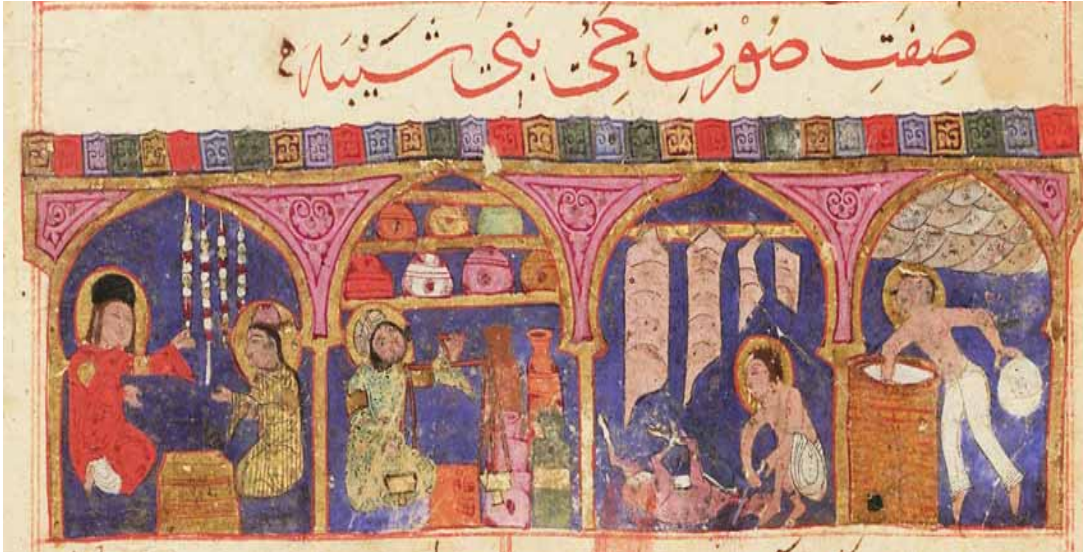 صِفَتِ صُوْرتِ حَيّ بَني شَيْبَه